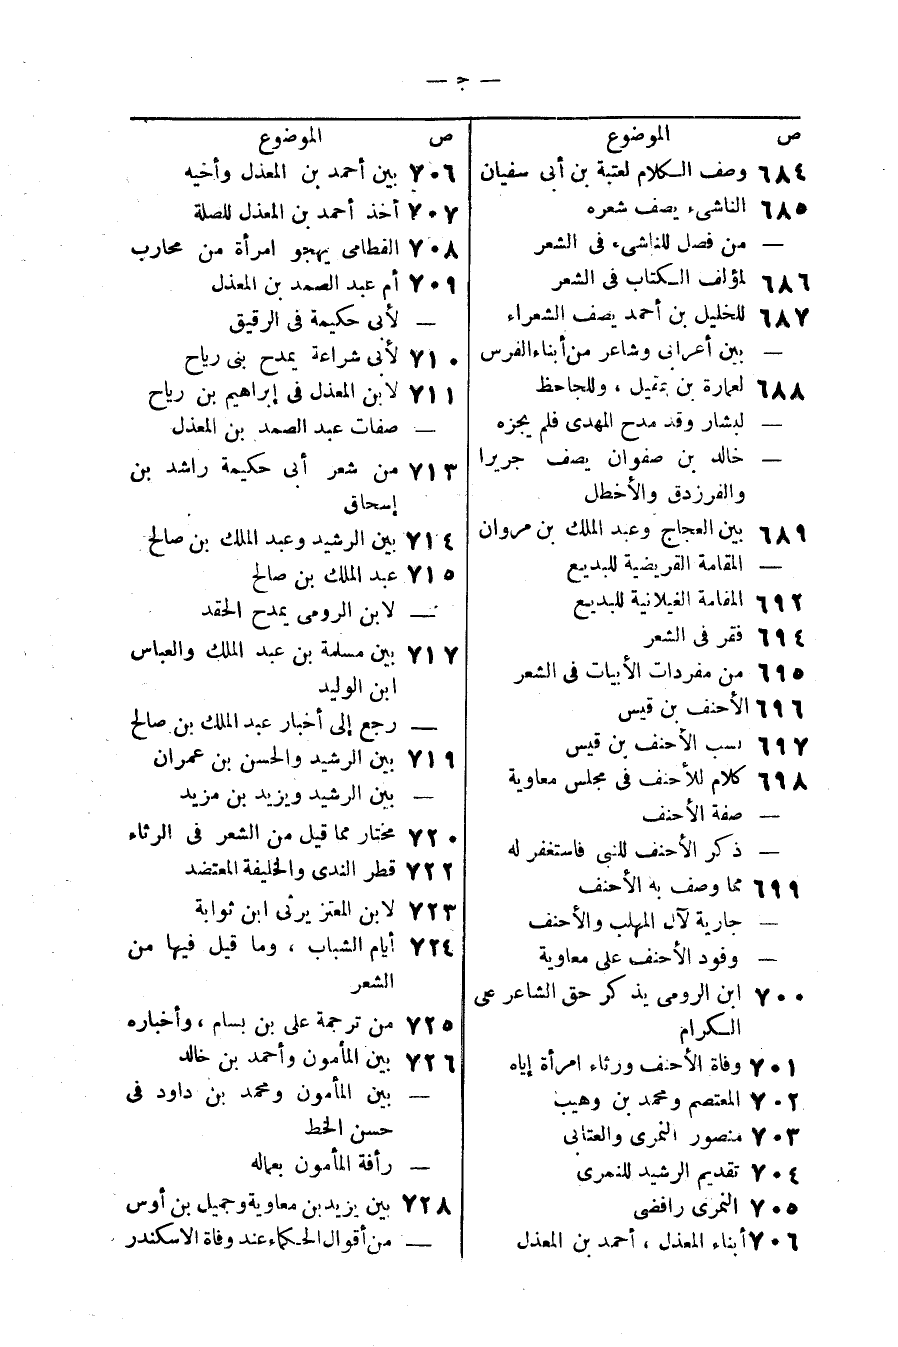 — ج —
ص الموضوع
٦٨٤ وصف الكلام لعتبة بن أبى سفيان
٦٨٥ الناشىء يصف شعره
— من فصل للناشىء فى الشعر
٦٨٦ لمؤلف الكتاب فى الشعر
٦٨٧ للخليل بن أحمد يصف الشعراء
— بين أعرابى وشاعر من أبناء الفرس
٦٨٨ لعمارة بن عقيل ، وللجاحظ
— لبشار وقد مدح المهدى فلم يجزه
— خالد بن صفوان يصف جريرا
والفرزدق والأخطل
٦٨٩ بين العجاج وعبد الملك بن مروان
— المقامة القريضية للبديع
٦٩٢ المقامة الغيلانية للبديع
٦٩٤ فقر فى الشعر
٦٩٥ من مفردات الأبيات فى الشعر
٦٩٦ الأحنف بن قيس
٦٩٧ نسب الأحنف بن قيس
٦٩٨ كلام للأحنف فى مجلس معاوية
— صفة الأحنف
— ذكر الأحنف للنبى فاستغفر له
٦٩٩ مما وصف به الأحنف
— جارية لآل المهلب والأحنف
— وفود الأحنف على معاوية
٧٠٠ ابن الرومى يذكر حق الشاعر على
الكرام
٧٠١ وفاة الأحنف ورثاء امرأة إياه
٧٠٢ المعتصم ومحمد بن وهيب
٧٠٣ منصور النمرى والعتابى
٧٠٤ تقديم الرشيد للنمرى
٧٠٥ النمرى رافضى
٧٠٦ أبناء المعذل ، أحمد بن المعذل
ص الموضوع
٧٠٦ بين أحمد بن المعذل وأخيه
٧٠٧ أخذ أحمد بن المعذل للصلة
٧٠٨ القطامى يهجو امرأة من محارب
٧٠٩ أم عبد الصمد بن المعذل
— لأبى حكيمة فى الرقيق
٧١٠ لأبى شراعة يمدح بنى رياح
٧١١ لابن المعذل فى إبراهيم بن رياح
— صفات عبد الصمد بن المعذل
٧١٣ من شعر أبى حكيمة راشد بن
إسحاق
٧١٤ بين الرشيد وعبد الملك بن صالح
٧١٥ عبد الملك بن صالح
— لابن الرومى يمدح الحقد
٧١٧ بين مسلمة بن عبد الملك والعباس
ابن الوليد
— رجع إلى أخبار عبد الملك بن صالح
٧١٩ بين الرشيد والحسن بن عمران
— بين الرشيد ويزيد بن مزيد
٧٢٠ مختار مما قيل من الشعر فى الرثاء
٧٢٢ قطر الندى والخليفة المعتضد
٧٢٣ لابن المعتز يرثى ابن ثوابة
٧٢٤ أيام الشباب ، وما قيل فيها من
الشعر
٧٢٥ من ترجمة على بن بسام ، وأخباره
٧٢٦ بين المأمون وأحمد بن خالد
— بين المأمون ومحمد بن داود فى
حسن الخط
— رأفة المأمون بعماله
٧٢٨ بين يزيد بن معاوية وجميل بن أوس
— من أقوال الحكماء عند وفاة الاسكندر